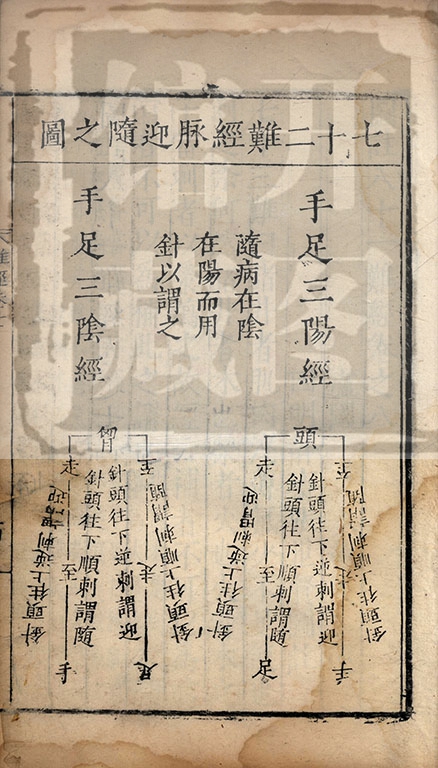 七十二難經脉迎隨之圖
手足三陽經
隨病在陰
在陽而用
針以謂之
手足三陰經
頭
至
走
手
針頭往上順刺謂隨
針頭往下逆刺謂迎
針頭往下順刺謂隨
走
至
足
針頭往上逆刺謂迎
胷
至
走
足
針頭往上順刺謂隨
針頭往下逆刺謂迎
針頭往下順刺謂隨
走
至
手
針頭往上逆刺謂迎